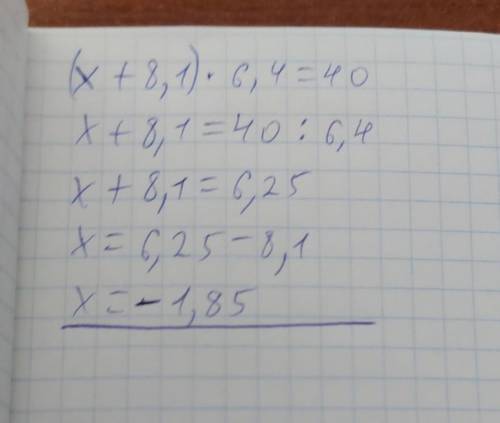 (x + 8,1) · 6,4 = 40
x + 8,1 = 40 : 6,4
x + 8,1 = 6,25
x = 6,25 - 8,1
x = - 1,85